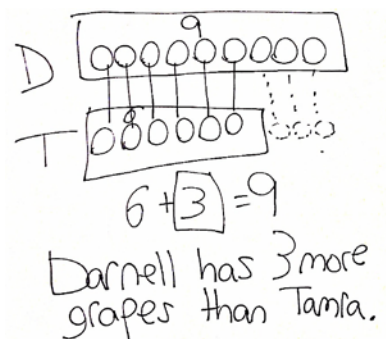 9
D
6
T
6 + 3 = 9
Darnell has 3 more
grapes than Tamra.